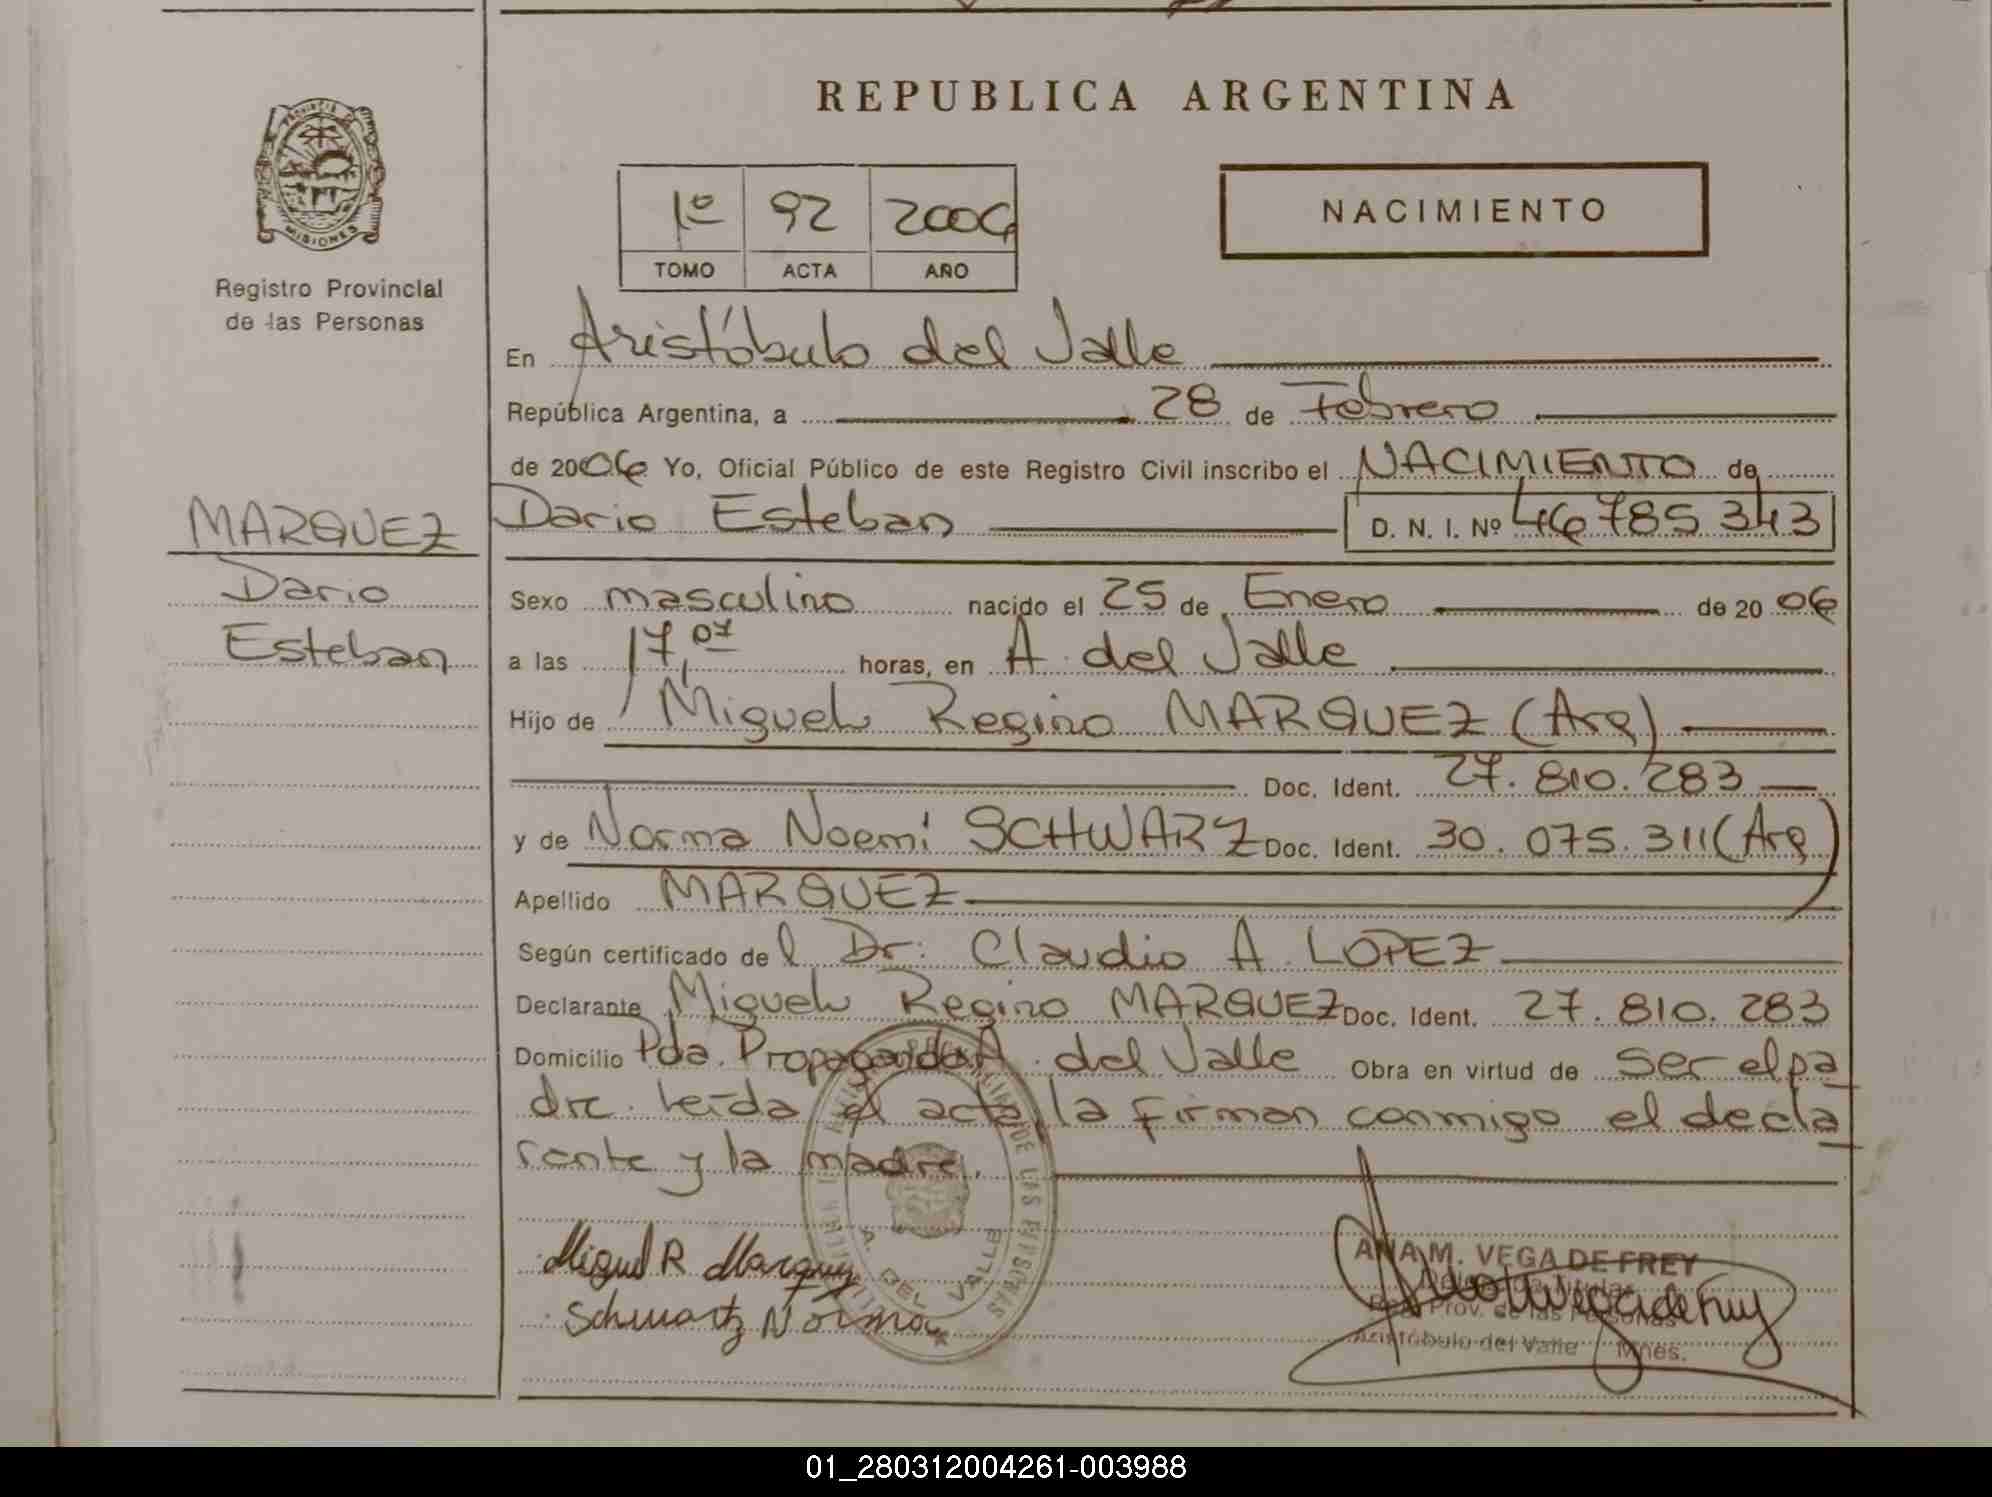 REPUBLICA ARGENTINA
PROVINCIA DE
MISIONES
Registro Provincial
de las Personas
1º 92 2006
TOMO ACTA AÑO
NACIMIENTO
En Aristóbulo del Valle
República Argentina, a 28 de Febrero
de 2006 Yo, Oficial Público de este Registro Civil inscribo el NACIMIENTO de
MARQUEZ
Dario
Esteban
Dario Esteban D. N. I. Nº 46785.343
Sexo masculino nacido el 25 de Enero de 20 06
a las 17,07 horas, en A. del Valle
Hijo de Miguel Regino MARQUEZ (Arg)
Doc. Ident. 27.810.283
y de Norma Noemí SCHWARZ Doc. Ident. 30.075.311 (Arg)
Apellido MARQUEZ
Según certificado del Dr: Claudio A. LOPEZ
Declarante Miguel Regino MARQUEZ Doc. Ident. 27.810.283
Domicilio Pda. Propaganda A. del Valle Obra en virtud de ser el pa
dre. Leída el acta, la firman conmigo el decla
rante y la madre.
A. DEL VALLE
DE LAS PERSONAS
Miguel R Marquez
Schwartz Norma
ANA M. VEGA DE FREY
Prov. de las Personas
Aristóbulo del Valle Mnes.
01_280312004261-003988